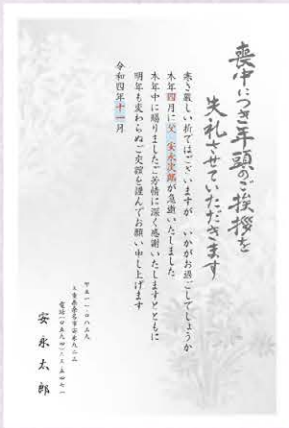 喪中につき年頭のご挨拶を
失礼させていただきます
寒さ厳しい折ではございますが いかがお過ごしでしょうか
本年四月に父 安永次郎が急逝いたしました
本年中に賜りましたご芳情に深く感謝いたしますとともに
明年も変わらぬご交誼を謹んでお願い申し上げます
令和四年十一月
三重県桑名市安永九二三
安永太郎